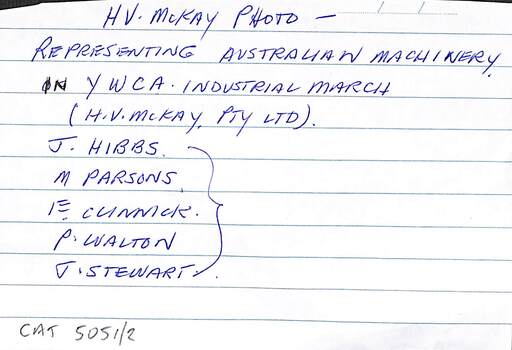 H.V. McKAY PHOTO —
REPRESENTING AUSTRALIAN MACHINERY.
IN YWCA. INDUSTRIAL MARCH
(H.V. McKAY. PTY LTD).
J. HIBBS.
M PARSONS.
E CLINNICK.
P. WALTON
J. STEWART.
CAT 5051/2